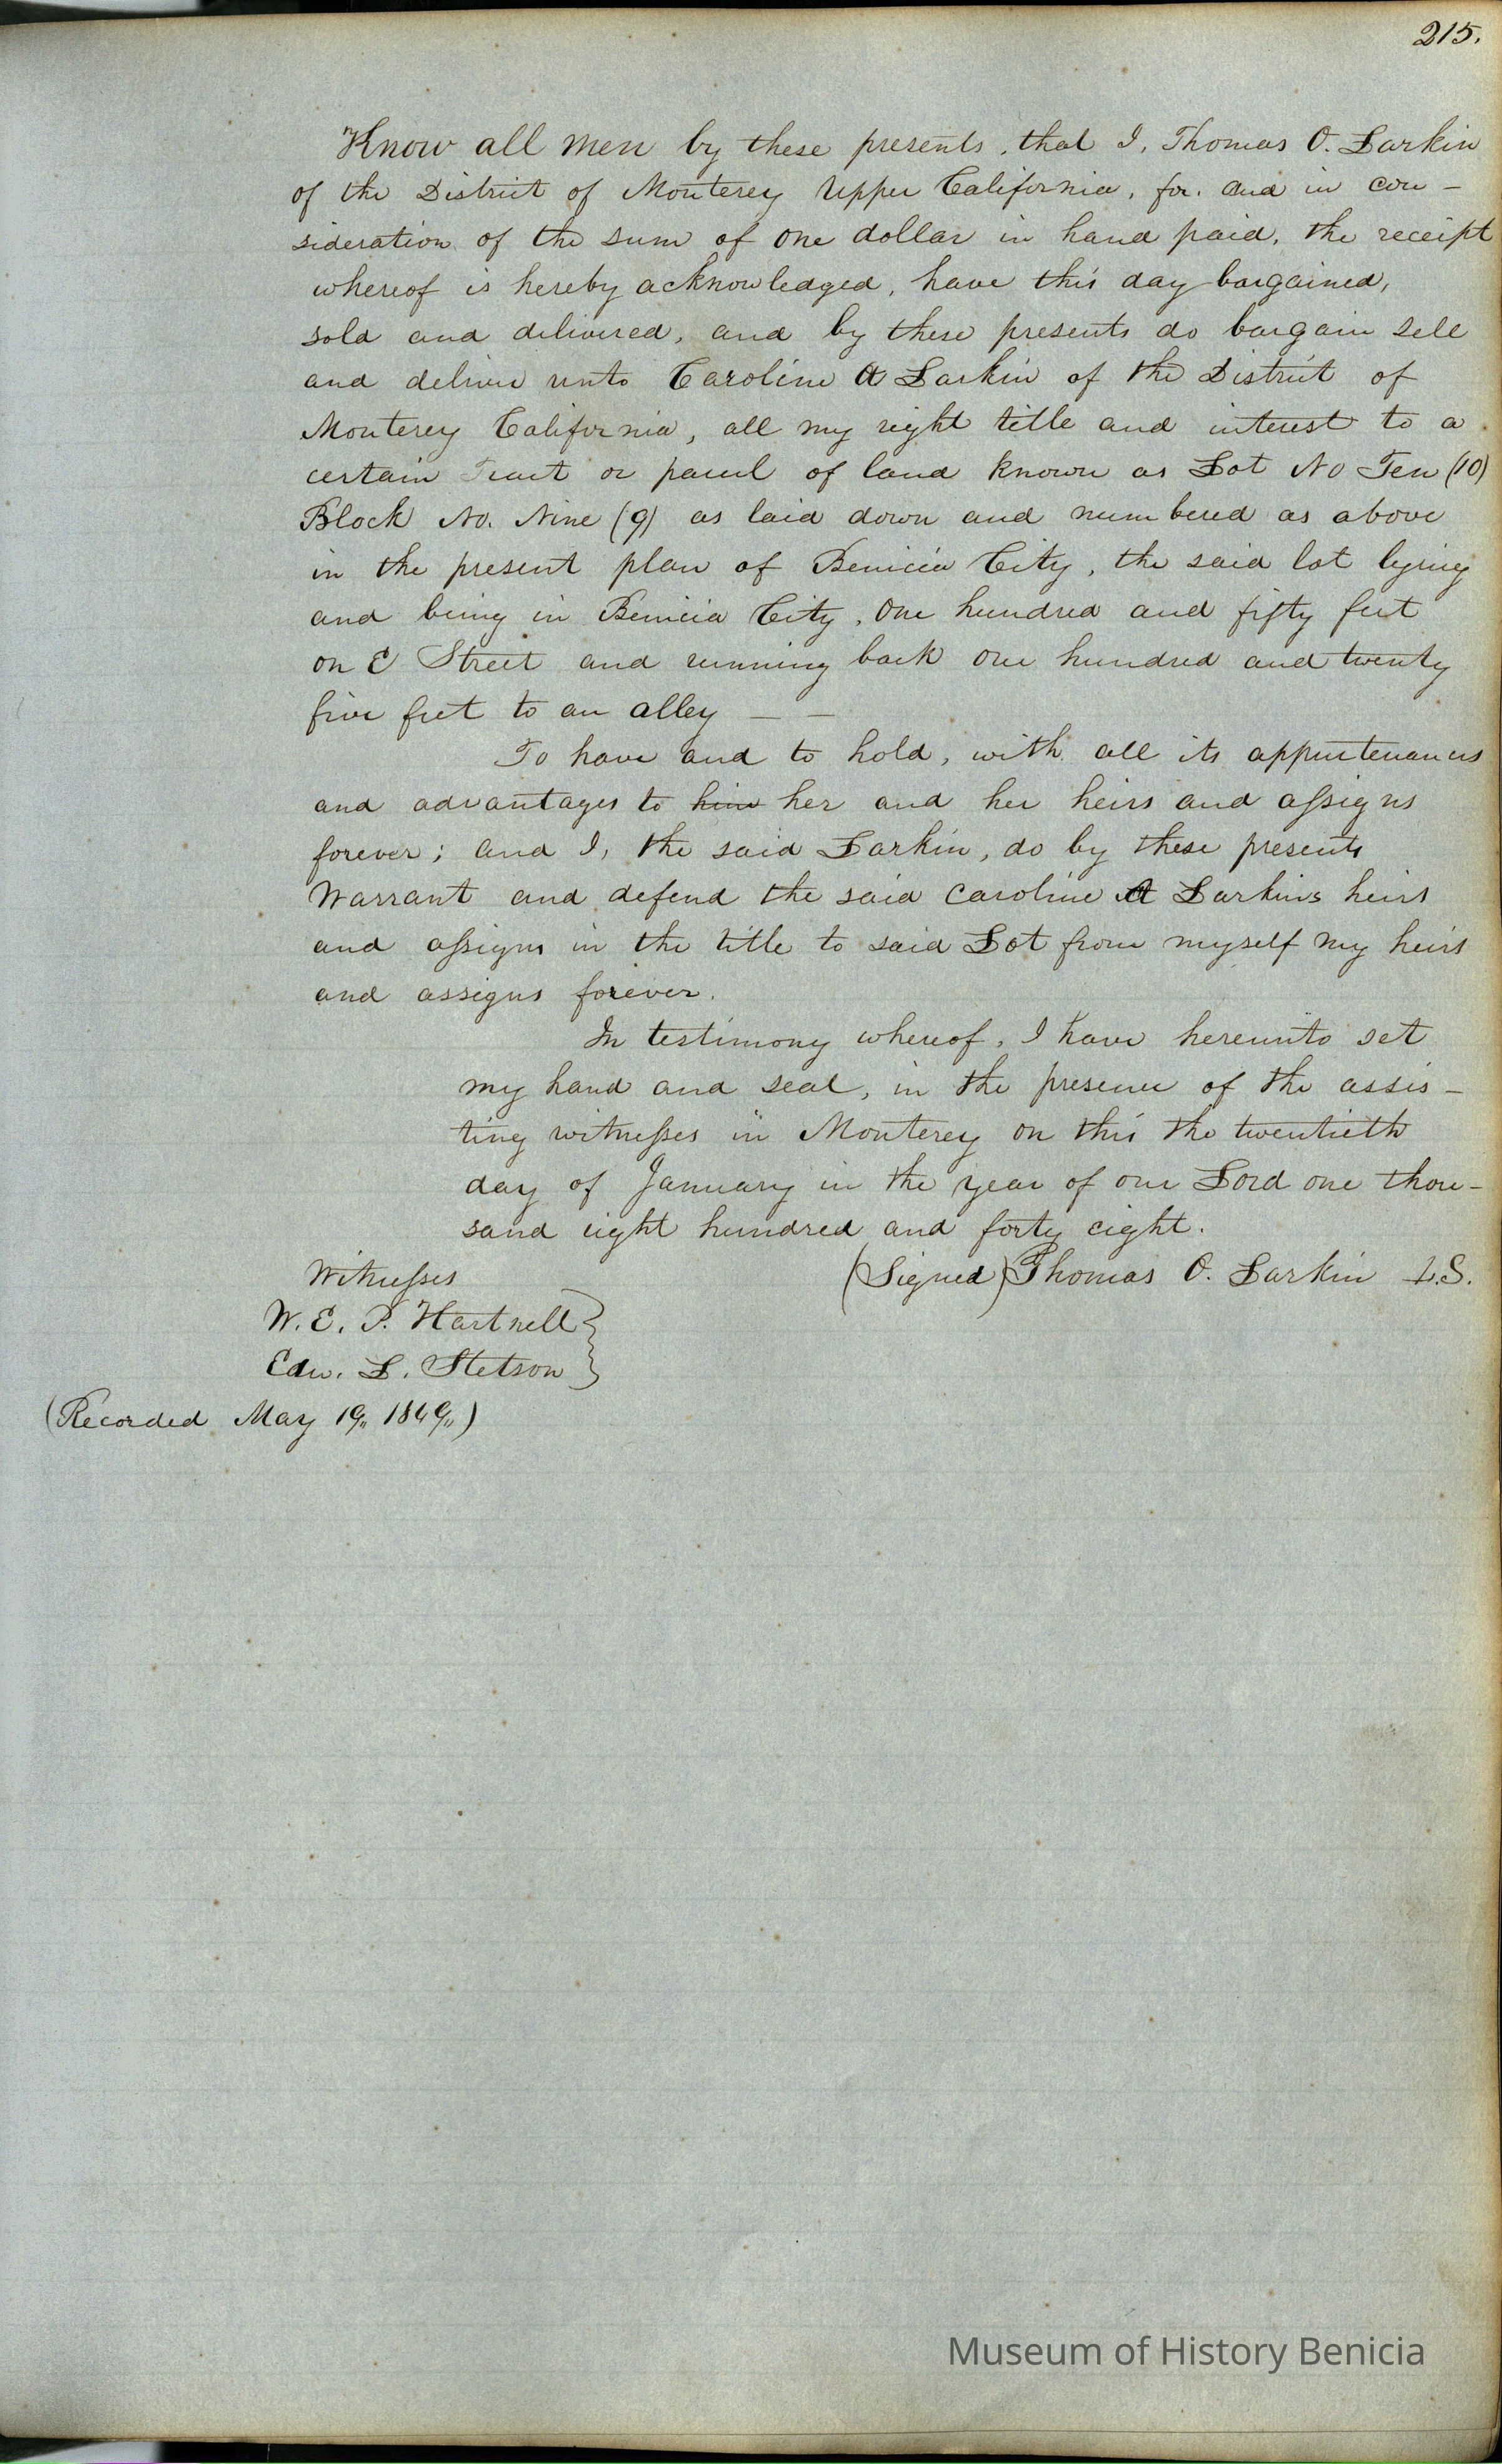 215.
Know all men by these presents, that I, Thomas O. Larkin
of the District of Monterey Upper California, for. and in con-
sideration of the sum of One dollar in hand paid, the receipt
whereof is hereby acknowledged, have this day bargained,
sold and delivered, and by these presents do bargain sell
and deliver unto Caroline A Larkin of the District of
Monterey California, all my right title and interest to a
certain Tract or parcel of land known as Lot No Ten (10)
Block No. Nine (9) as laid down and numbered as above
in the present plan of Benicia City, the said lot lying
and being in Benicia City, One hundred and fifty feet
on E Street and running back one hundred and twenty
five feet to an alley — —
To have and to hold, with all its appurtenances
and advantages to him her and her heirs and assigns
forever; and I, the said Larkin, do by these presents
Warrant and defend the said Caroline A Larkins heirs
and assigns in the title to said Lot from myself my heirs
and assigns forever.
In testimony whereof, I have hereunto set
my hand and seal, in the presence of the assis-
ting witnesses in Monterey on this the twentieth
day of January in the year of our Lord one thou-
sand eight hundred and forty eight.
Witnesses (Signed) Thomas O. Larkin L.S.
W. E. P. Hartnell
Edw. L. Stetson
(Recorded May 19,, 1849,,)
Museum of History Benicia